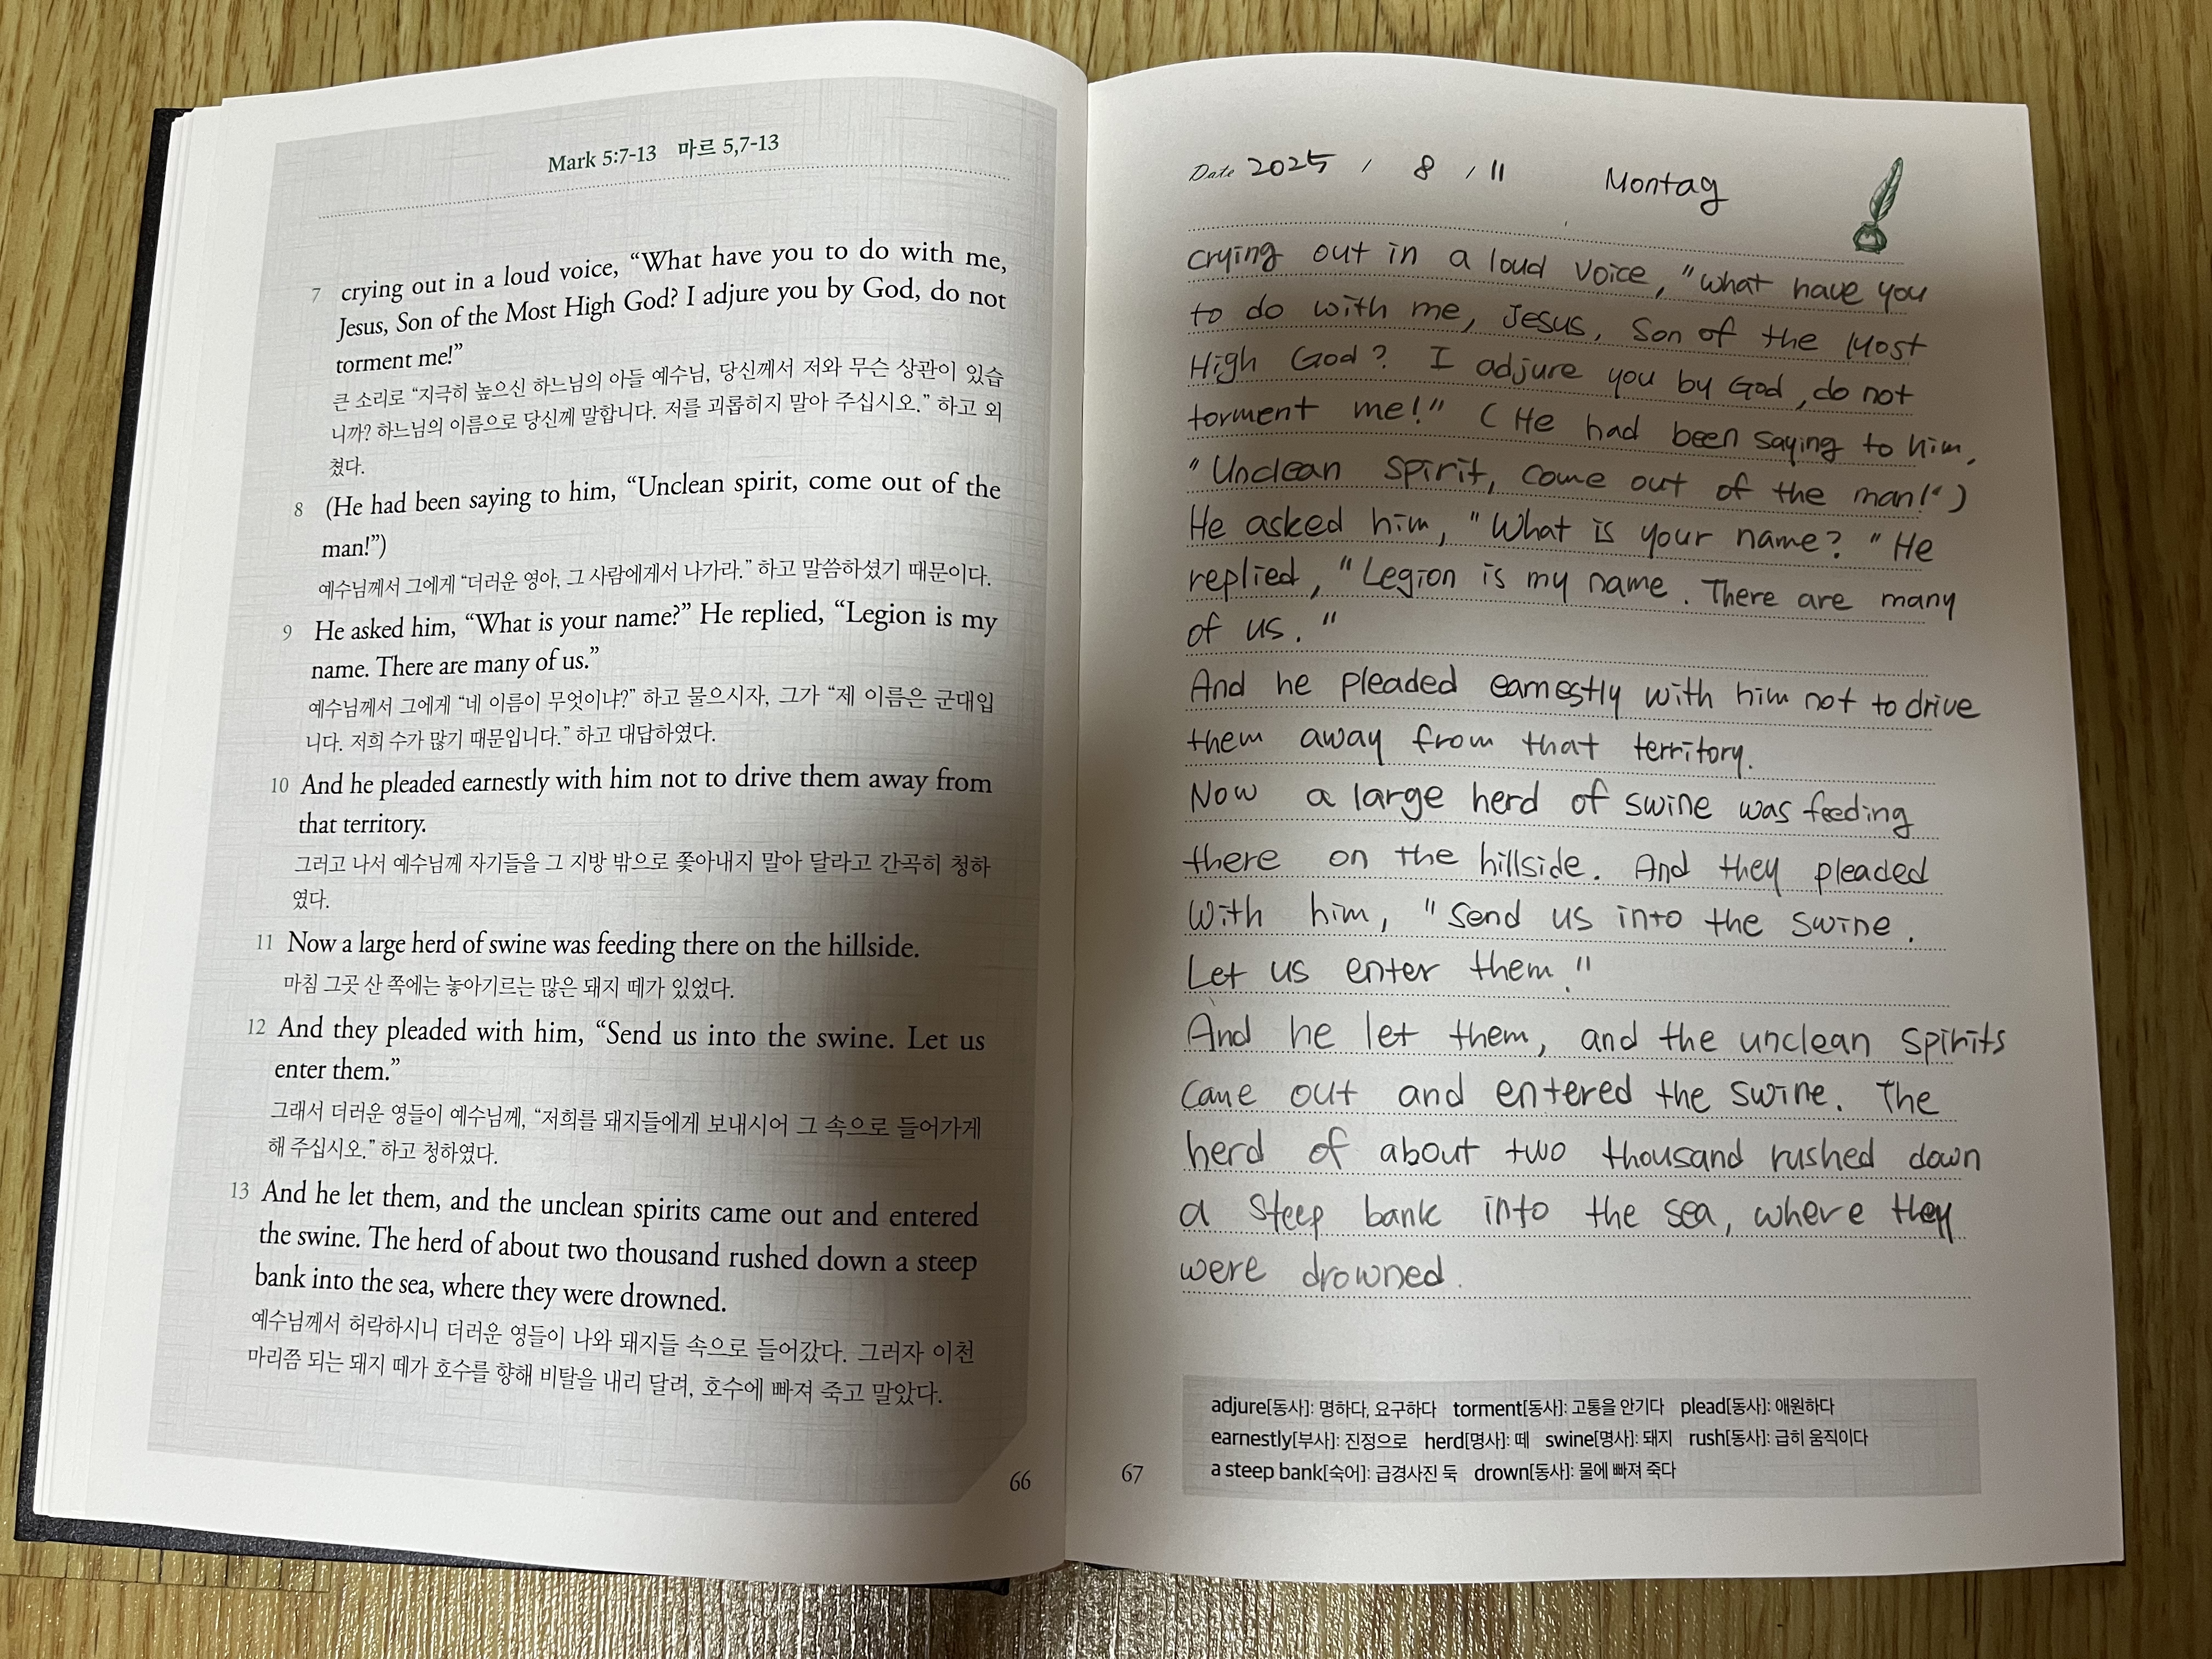 Mark 5:7-13 마르 5,7-13
7 crying out in a loud voice, “What have you to do with me,
Jesus, Son of the Most High God? I adjure you by God, do not
torment me!”
큰 소리로 “지극히 높으신 하느님의 아들 예수님, 당신께서 저와 무슨 상관이 있습
니까? 하느님의 이름으로 당신께 말합니다. 저를 괴롭히지 말아 주십시오.” 하고 외
쳤다.
8 (He had been saying to him, “Unclean spirit, come out of the
man!”)
예수님께서 그에게 “더러운 영아, 그 사람에게서 나가라.” 하고 말씀하셨기 때문이다.
9 He asked him, “What is your name?” He replied, “Legion is my
name. There are many of us.”
예수님께서 그에게 “네 이름이 무엇이냐?” 하고 물으시자, 그가 “제 이름은 군대입
니다. 저희 수가 많기 때문입니다.” 하고 대답하였다.
10 And he pleaded earnestly with him not to drive them away from
that territory.
그러고 나서 예수님께 자기들을 그 지방 밖으로 쫓아내지 말아 달라고 간곡히 청하
였다.
11 Now a large herd of swine was feeding there on the hillside.
마침 그곳 산 쪽에는 놓아기르는 많은 돼지 떼가 있었다.
12 And they pleaded with him, “Send us into the swine. Let us
enter them.”
그래서 더러운 영들이 예수님께, “저희를 돼지들에게 보내시어 그 속으로 들어가게
해 주십시오.” 하고 청하였다.
13 And he let them, and the unclean spirits came out and entered
the swine. The herd of about two thousand rushed down a steep
bank into the sea, where they were drowned.
예수님께서 허락하시니 더러운 영들이 나와 돼지들 속으로 들어갔다. 그러자 이천
마리쯤 되는 돼지 떼가 호수를 향해 비탈을 내리 달려, 호수에 빠져 죽고 말았다.
66
Date 2025 / 8 / 11 Montag
crying out in a loud voice, "What have you
to do with me, Jesus, Son of the Most
High God? I adjure you by God, do not
torment me!" (He had been saying to him,
"Unclean spirit, come out of the man!")
He asked him, "What is your name? "He
replied, "Legion is my name. There are many
of us."
And he pleaded earnestly with him not to drive
them away from that territory.
Now a large herd of swine was feeding
there on the hillside. And they pleaded
with him, "Send us into the swine.
Let us enter them."
And he let them, and the unclean spirits
came out and entered the swine. The
herd of about two thousand rushed down
a steep bank into the sea, where they
were drowned.
adjure[동사]: 명하다, 요구하다 torment[동사]: 고통을 안기다 plead[동사]: 애원하다
earnestly[부사]: 진정으로 herd[명사]: 떼 swine[명사]: 돼지 rush[동사]: 급히 움직이다
a steep bank[숙어]: 급경사진 둑 drown[동사]: 물에 빠져 죽다
67